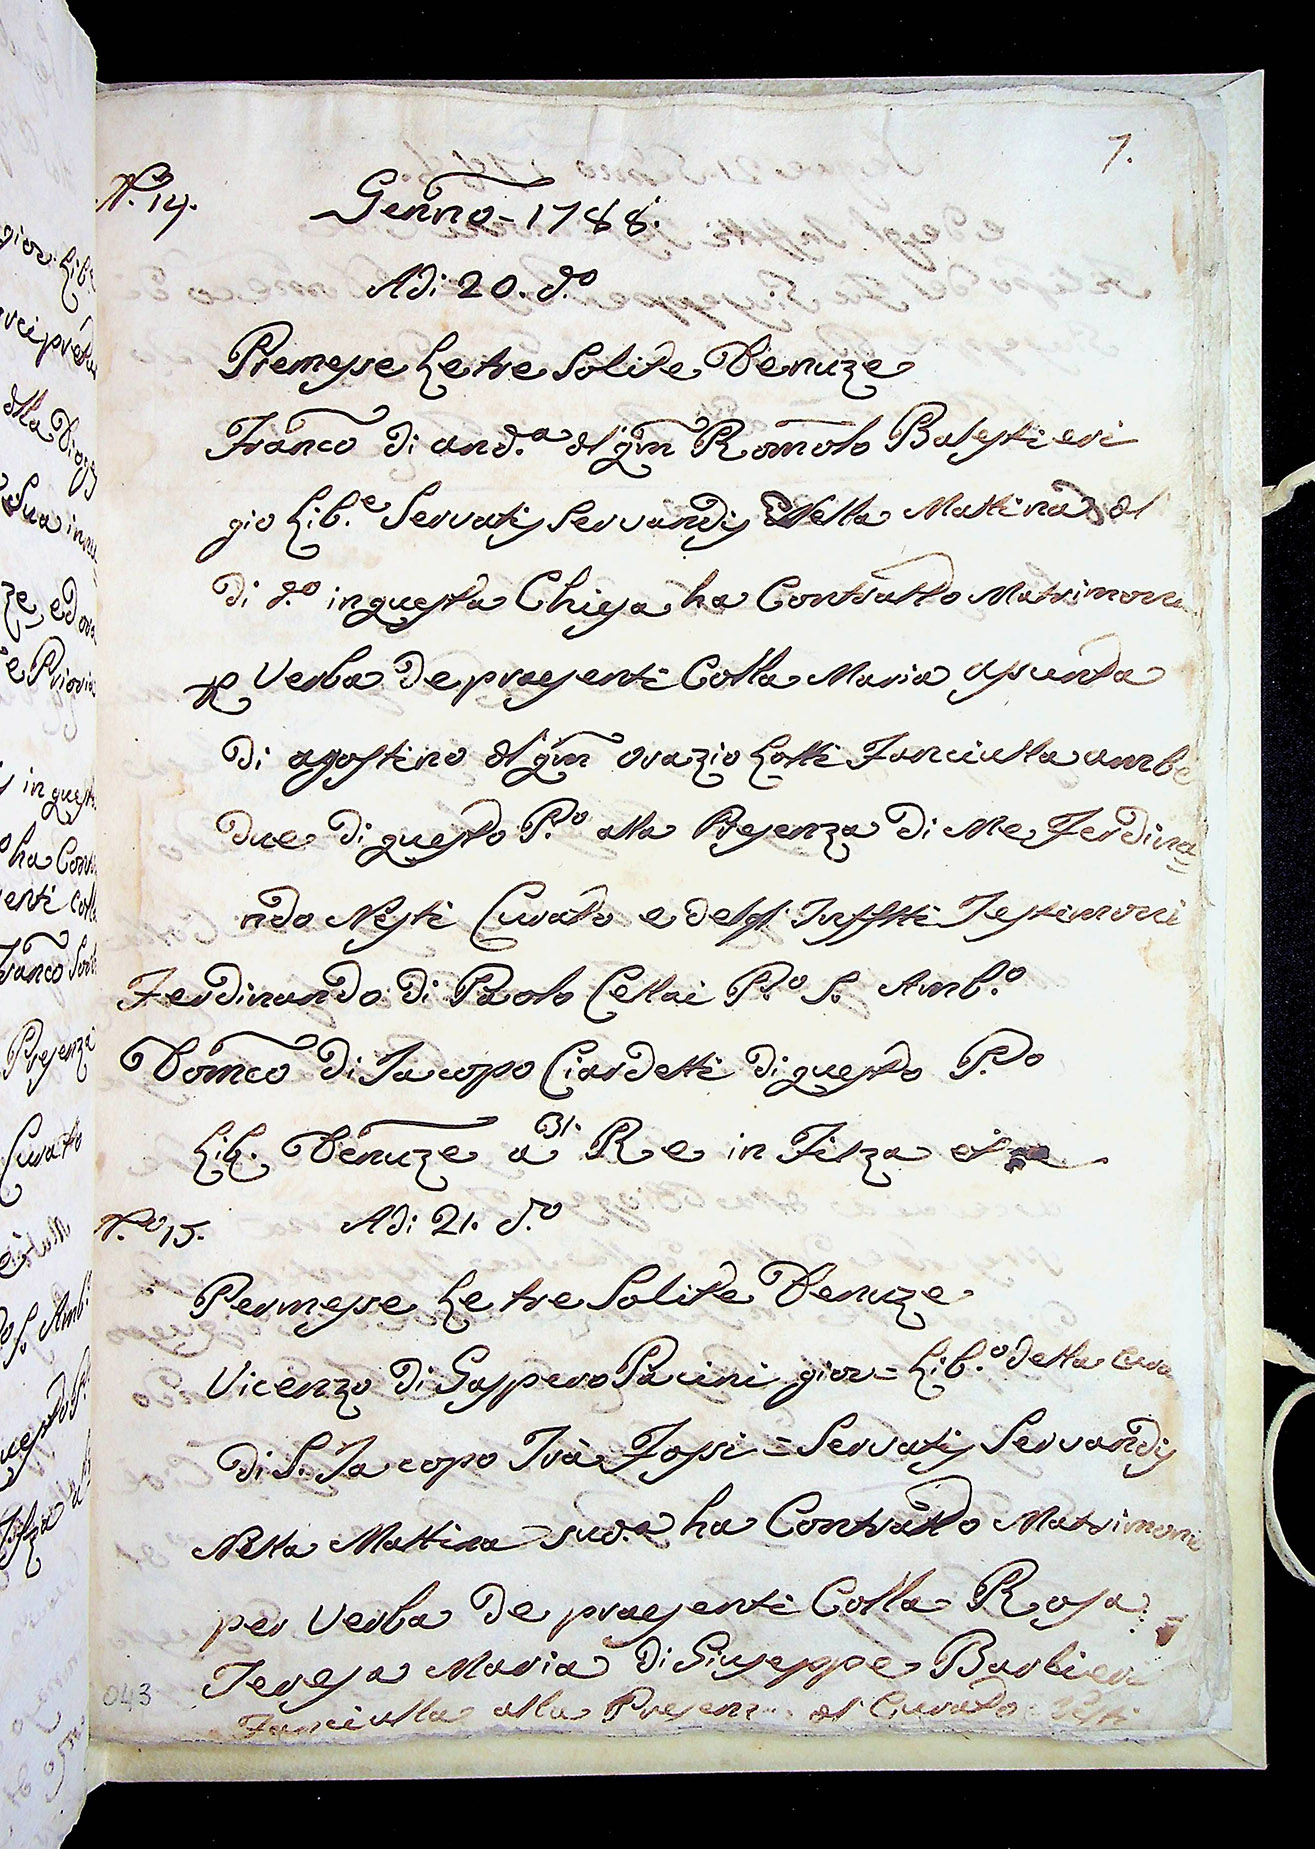 7.
N.º 14. Genno - 1788.
Adi 20. d.º
Premesse Le tre Solite Denuze
Franco di and.ª dl qm Romolo Balestieri
gio Lib.e Servatis Servandis Nella Mattina dl
di d.º in questa Chiesa ha Contratto Matrimoni
P Verba de praesenti Colla Maria assunta
di agostino dl qm Orazio Lotti Fanciulla ambe
due di questo P.º alla Presenza di Me Ferdina
ndo Nesti Curato e degl' Infstti Testimoni
Ferdinando di Paolo Cellai P.º S. Amb.º
Domco di Jacopo Ciardetti di questo P.º
Lib. Denuze a 31. R e in Filza
N.º 15. Adi 21. d.º
Permesse Le tre Solite Denuze
Vicenzo di Gasppero Pacini giov = Lib.º della Cura
di S. Jacopo Trà Fossi = Servatis Servandis
Nella Mattina sud.ª ha Contratto Matrimoni
per Verba de praesenti Colla Rosa
Teresa Maria di Giuseppe Barbieri
Fanciulla alla Presenz dl Curato Nesti
043